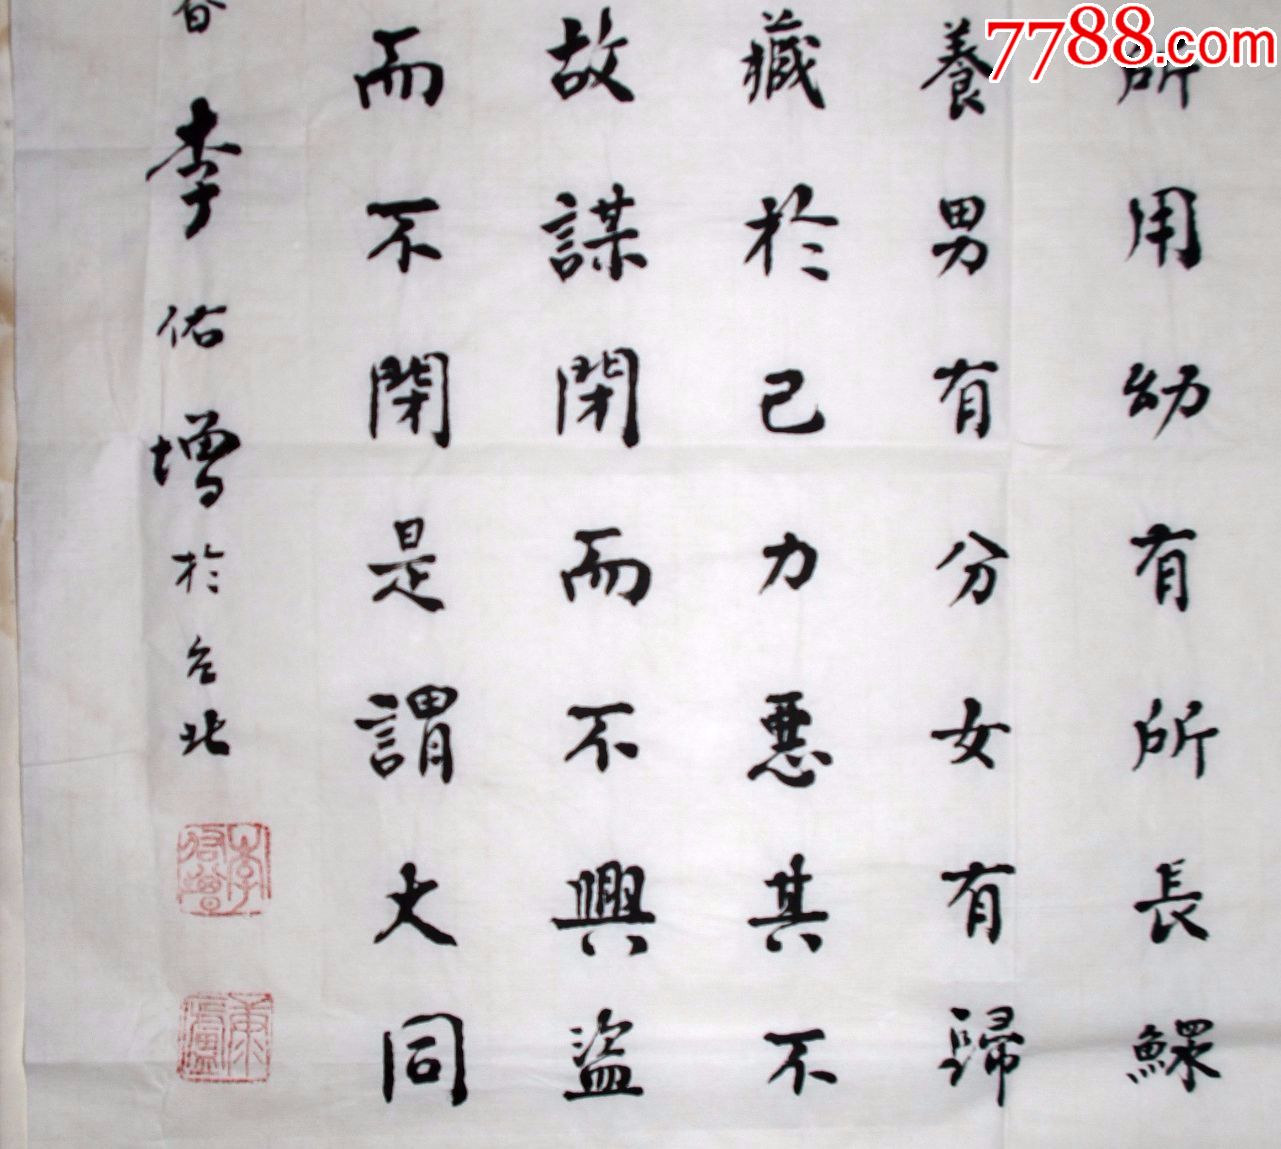 7788.com
所用幼有所長鰥
養男有分女有歸
藏於己力惡其不
故謀閉而不興盜
而不閉是謂大同
李佑增於台北
李佑增